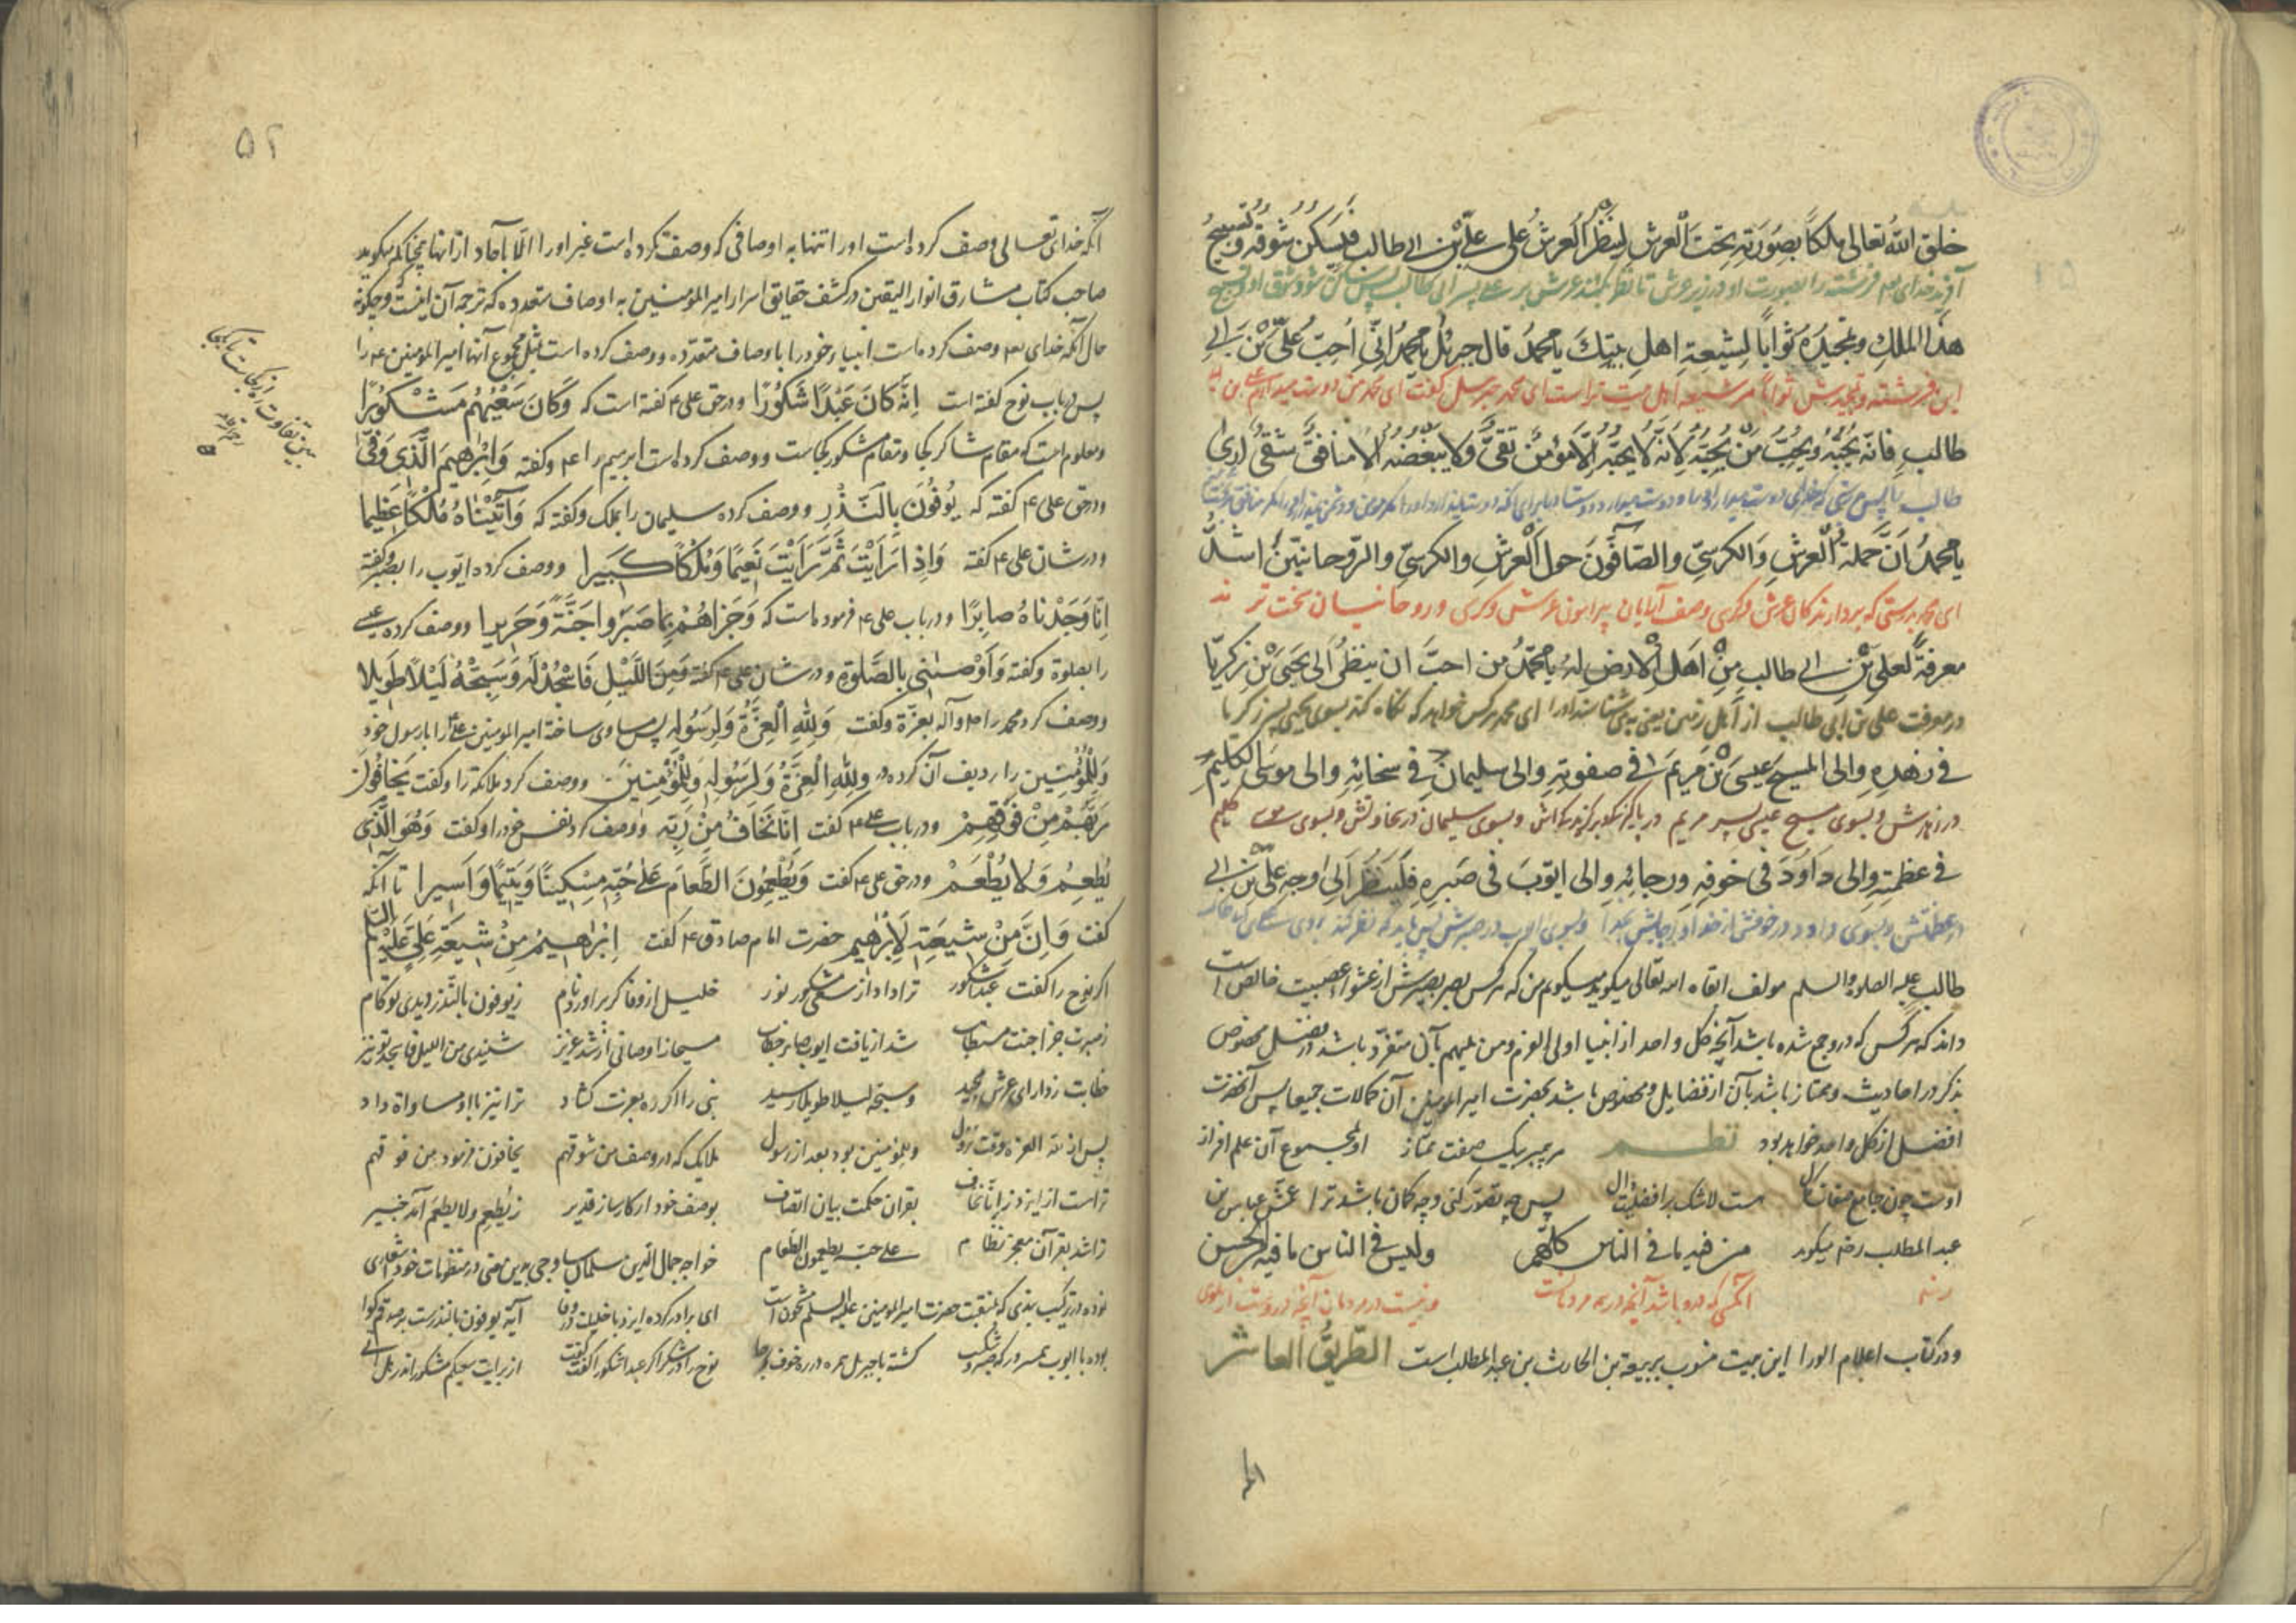 خلق الله تعالی ملکاً بصورته تحت العرش لینظر العرش علی علی بن ابی طالب فیسکن شوقه وتسبیح
آفرید خدای تعه فرشته را بصورت او در زیر عرش تا نظر کند عرش بر علی پسر ابی طالب پس ساکن شود شوق او وتسبیح
هذا الملک وتمجیده ثواباً لشیعة اهل بیتک یا محمد قال جبرئیل یا محمد انی احب علی بن ابی
این فرشته وتمجیدش ثواباً مر شیعه اهل بیت تراست ای محمد جبرئیل گفت ای محمد من دوست میدارم علی بن ابی
طالب فانه یحبه ویحب من یحبه لانه لا یحبه الا مؤمن تقی ولا یبغضه الا منافق شقی
طالب
یا محمد ان حملة العرش والکرسی والصافون حول العرش والکرسی والروحانیین اشد
ای محمد بدرستی که بردارندگان عرش وکرسی وصف آرایان پیرامون عرش وکرسی وروحانیان سخت تر ند
معرفةً لعلی بن ابی طالب من اهل الارض له یا محمد من احب ان ینظر الی یحیی بن زکریا
در معرفت علی بن ابی طالب از اهل زمین یعنی می شناسند اورا ای محمد هرکس خواهد که نگاه کند بسوی یحیی پسر زکریا
فی زهده والی المسیح عیسی بن مریم فی صفوته والی سلیمان فی سخائه والی موسی الکلیم
در زهدش وبسوی مسیح عیسی پسر مریم در وبسوی سلیمان در سخاوتش وبسوی موسی کلیم
فی عظمته والی داود فی خوفه ورجائه والی ایوب فی صبره فلینظر الی وجه علی بن ابی
در عظمتش وبسوی داود در خوفش از خدا وبسوی ایوب در صبرش پس باید که نظر کند بروی علی
طالب علیه الصلوة والسلم مولف ابقاه الله تعالی میگوید میگویم من که هرکس بصر بصیرتش از غشوا عصبیت خالص است
داند که هرکس که درو جمع شده باشد آنچه کل واحد از انبیا اولی العزم ومن یلیهم بآن متفرد باشد در فضل مخصوص
بذکر در احادیث وممتاز باشد بآن از فضایل ومخصوص باشد بحضرت امیر المومنین آن کمالات جمیعا پس آنحضرت
افضل از کل واحد خواهد بود نظم هر پیمبر بیک صفت ممتاز او بمجموع آن علم افراز
اوست چون جامع صفات کمال هست لاشک بر افضلیت دال پس چه تصور کنی وچه کمان باشد ترا عبّاس بن
عبد المطلب رضه میگوید من فیه ما فی الناس کلهم ولیس فی الناس ما فیه من الحسن
آنکسی که درو باشد آنچه در همه مردمانست ونیست در مردمان آنچه دروست از نیکوی
ودر کتاب اعلام الورا این بیت منسوب بربیعة بن الحارث بن عبد المطلب است الطریق العاشر
۵۲
آنکه خدای تعالی وصف کرده است اورا تنها به اوصافی که وصف کرده است غیر اورا الا بآحاد از انها چنانکه میگوید
صاحب کتاب مشارق انوار الیقین در کشف حقایق اسرار امیر المؤمنین به اوصاف متعدده که ترجمه آن اینست وچگونه
حال آنکه خدای تعه وصف کرده است انبیاء خود را باوصاف متعدده ووصف کرده است بمثل مجموع آنها امیر المومنین ع را
پس در باب نوح گفته است انه کان عبدا شکورا ودر حق علی ع گفته است که وکان سعیهم مشکورا
ومعلوم است که مقام شاکر کجا ومقام مشکور کجاست ووصف کرده است ابرهیم را ع وگفته وابرهیم الذی وفی
ودر حق علی ع گفته که یوفون بالنذر ووصف کرده سلیمان را بملک وگفته که وآتیناه ملکا عظیما
ودر شان علی ع گفته واذا رایت ثم رایت نعیما وملکا کبیرا ووصف کرده ایوب را بصبر وگفته
انا وجدناه صابرا ودر باب علی ع فرموده است که وجزاهم بما صبروا جنة وحریرا ووصف کرده عیسی
را بصلوة وگفته واوصانی بالصلوة ودر شان علی ع گفته ومن اللیل فاسجد له وسبحه لیلا طویلا
ووصف کرد محمد را ص وآله بعزة وگفت ولله العزة ولرسوله پس مساوی ساخته امیر المومنین علی را با رسول خود
وللمؤمنین را ردیف آن کرده ولله العزة ولرسوله وللمؤمنین ووصف کرد ملائکه را وگفت یخافون
ربهم من فوقهم ودر باب علی ع گفت انا نخاف من ربه ووصف کرد نفس خود را وگفت وهو الذی
یطعم ولا یطعم ودر حق علی ع گفت ویطعمون الطعام علی حبه مسکینا ویتیما واسیرا تا آنکه
گفت وان من شیعته لابرهیم حضرت امام صادق ع گفت ابرهیم من شیعة علی علیه السلم
اگر نوح را گفت عبدا شکور ترا داد از سعی مشکور نور خلیل از وفا کر براورد نام ز یوفون بالنذر دیدی تو کام
ز صبرت جزا جنت مستطاب شد ار یافت ایوب صابر خطاب مسیحا ز اوصانی ار شد عزیز شنیدی من اللیل فاسجد تو نیز
خطابت ز دارای عرش مجید وسبحه لیلا طویلا رسید نبی را اگر ره بعزت گشاد ترا نیز با او مساواة داد
پس از لله العزه وقت نزول وللمومنین بود بعد از رسول ملایک که در وصف من شوقهم یخافون فرمود من فوقهم
تراست از ایزد ز انا نخاف بقران حکمت بیان اتصاف بوصف خود ار کارساز قدیر ز یطعم ولا یطعم آمد خبیر
ترا شد بقرآن معجز نظام علی حبه یطعمون الطعام خواجه جمال الدین سلمان ساوجی بدین معنی در منظومات خود اشعاری
نموده در ترکیب بندی که بمنقبت حضرت امیر المومنین علیه السلم مشحون است ای برادر کرده ایزد با خلیلت در وفا آیة یوفون بالنذرست بر صدقم گوا
بوده با ایوب همسر کشته با جبریل همره در ره خوف ورجا نوح را در شکر اگر عبدا شکورا گفت گفت از برایت سعیکم مشکور اندر هل اتی
ببین تفاوت ره از کجاست تا بکجا